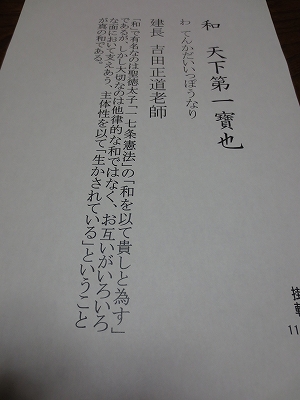 和　天下第一寶也
わ　てんかだいいっぽうなり
建長　吉田正道老師
「和」で有名なのは聖徳太子「一七条憲法」の「和を以て貴しと為す」
であるが、しかし大切なのは他律的な和ではなく、お互いがいろいろ
な面において支えあう、主体性を以て「生かされている」ということ
が真の和である。
掛軸
11